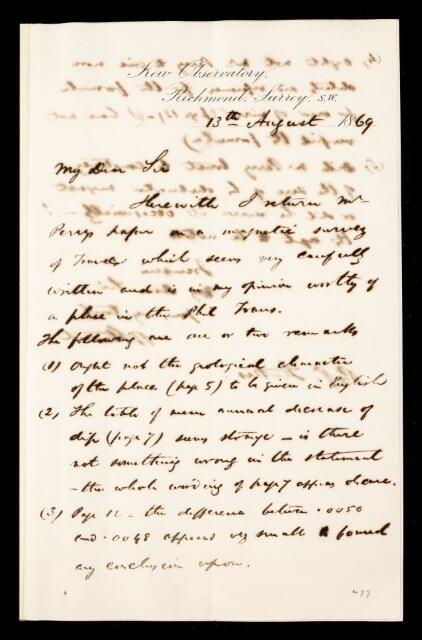 Kew Observatory,
Richmond, Surrey, S.W.
13th August 1869
My Dear Sir
Herewith I return Mr
Perrys paper on a magnetic survey
of France which seems very carefully
written and is in my opinion worthy of
a place in the Phil Trans.
The following are one or two remarks
(1) Ought not the geological character
of the place (page 5) to be given in English
(2) The table of mean annual decrease of
dip (page 7) seems strange – is there
not something wrong in the statement
– the whole wording of page 7 appears obscure.
(3) Page 12 – the difference between .0050
and .0048 appears very small to found
any conclusion upon.
477